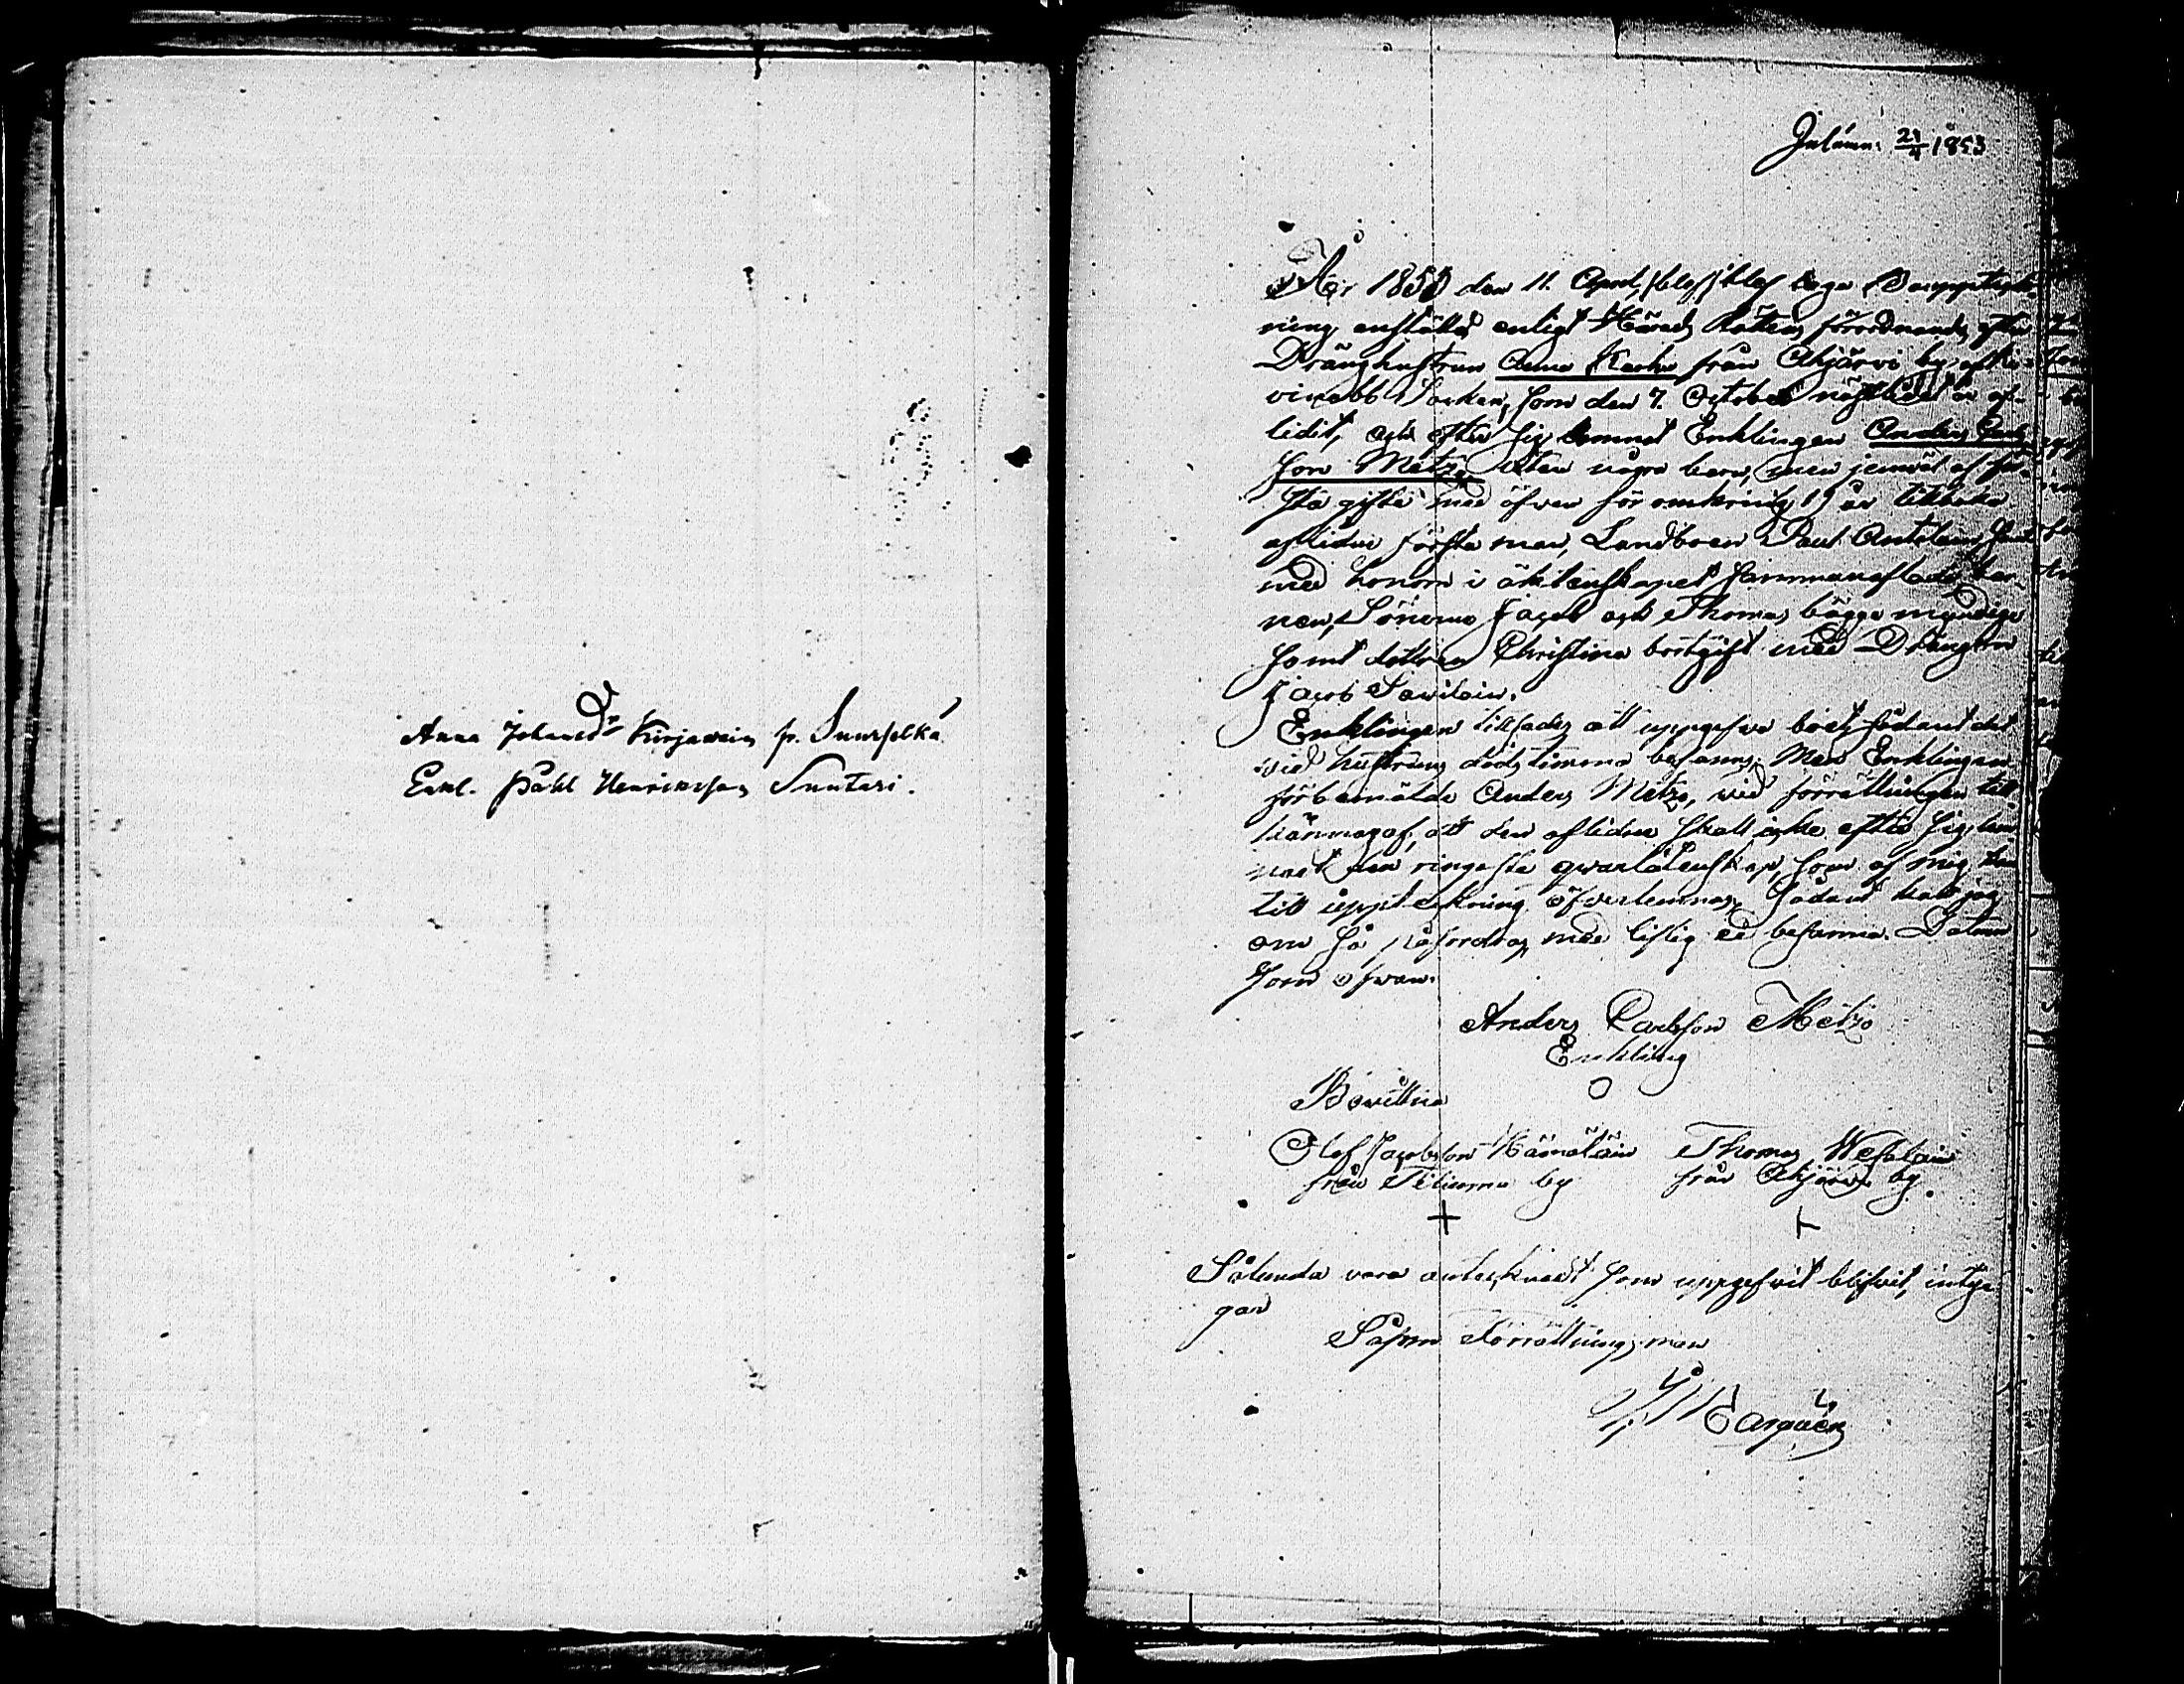 Anna Johansdr Kirjawain fr. Suurselkä
Enkl. Påhl Henriksson Suntari.
Inlemn. 21/4 1853
År 1853 den 11. April, blef laga Bouppteck-
ning anstäld enligt Härads Rättens förordnande efter
Dränghustrun Anna Karhu från Ahjärvi by af Ki-
vinebb Socken, som den 7. October nästledet år af-
lidit, och efter sig lemnat Enklingen Anders Carls-
son Metzo utan några barn, men jemväl af för-
sta gifte med öfver för omkring 19 år tillbaka
aflidne första man, Landboen Paul Antilain samt
med honom i äktenskapet sammanaflade bar-
nen, Sönerne Jacob och Thomas bägge myndige
samt dottren Christina bortgift med Drängen
Jacob Savilain.
Enklingen tillsades att uppgifva boet sådant det
vid hustruns dödstimma befanns. Men Enklingen
förbemälde Anders Metzo, vid förrättningen till-
kännagaf, att den aflidne skall icke efter sig lem-
nat den ringaste qvarlåtenskap, som af mig kan
till uppteckning öfverlemnas, Sådant kan jag
om så påfordras med liflig ed besanna. Datum
som ofvan.
Anders Carlsson Metzo
Enkling
O
Bevittna
Olof Jacobsson Hämäläin Thomas Wesalain
från by från Ahjärvi by.
+ +
Sålunda vara antecknadt som uppgifvit blifvit, intyga
gar
Såsom Förrättnings man